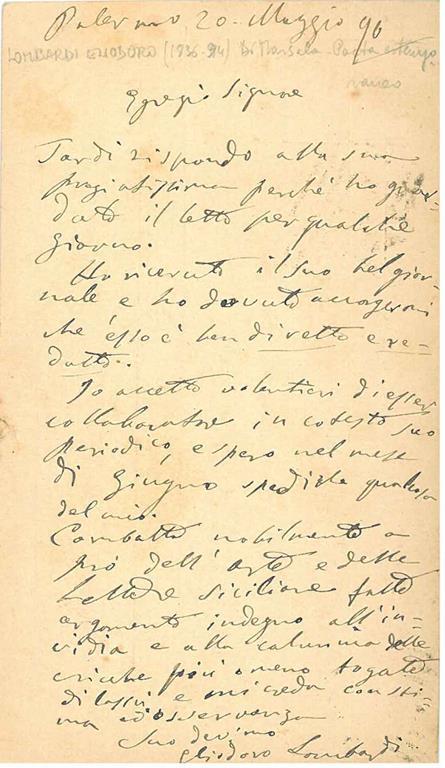 Palermo 20 - Maggio 90
LOMBARDI ELIODORO (1836-94) Di Marsala - Poeta estempo
raneo
Egregio Signore
Tardi rispondo alla sua
pregiatissima perchè ho guar-
dato il letto per qualche
giorno.
Ho ricevuto il suo bel gior-
nale e ho dovuto accorgermi
che esso è ben diretto e re-
datto.
Io accetto volentieri di essere
collaboratore in cotesto suo
Periodico, e spero nel mese
di Giugno spedirle qualcosa
del mio.
Combatta nobilmente a
prò dell'arte e delle
lettere siciliane fatte
argomento indegno all'in-
vidia e alla calunnia delle
cricche più o meno togate
di lassù e mi creda con sti-
ma ed osservanza
Suo dev.mo
Eliodoro Lombardi